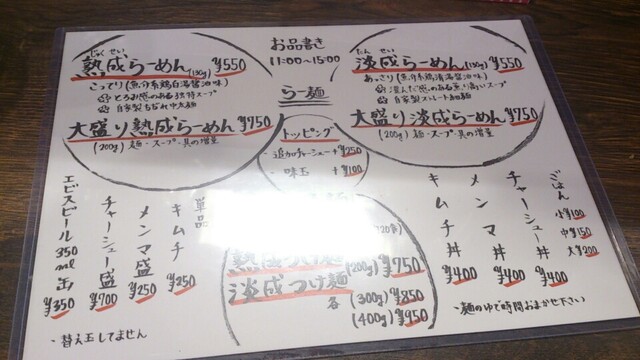 お品書き
11:00~15:00
らー麺
じゃくせい
熟成らーめん(130g) ¥550
こってり(魚介系鶏白湯醤油味)
とろみ感のある独特スープ
自家製もちもち中太麺
大盛り熟成らーめん ¥750
(200g) 麺・スープ・具の増量
たんせい
淡成らーめん(130g) ¥550
あっさり(魚介系鶏清湯醤油味)
自家製ストレート細麺
大盛り淡成らーめん ¥750
(200g) 麺・スープ・具の増量
トッピング
・追加チャーシュー+¥250
・味玉 +¥100
熟成つけ麺
淡成つけ麺
(200g) ¥750
各
(300g) ¥850
(400g) ¥950
単品
キムチ ¥250
メンマ盛 ¥250
チャーシュー盛 ¥700
エビスビール350ml缶 ¥350
・替え玉してません
ごはん
小¥100
中¥150
大¥200
チャーシュー丼 ¥400
メンマ丼 ¥400
キムチ丼 ¥400
・麺のゆで時間おまかせ下さい